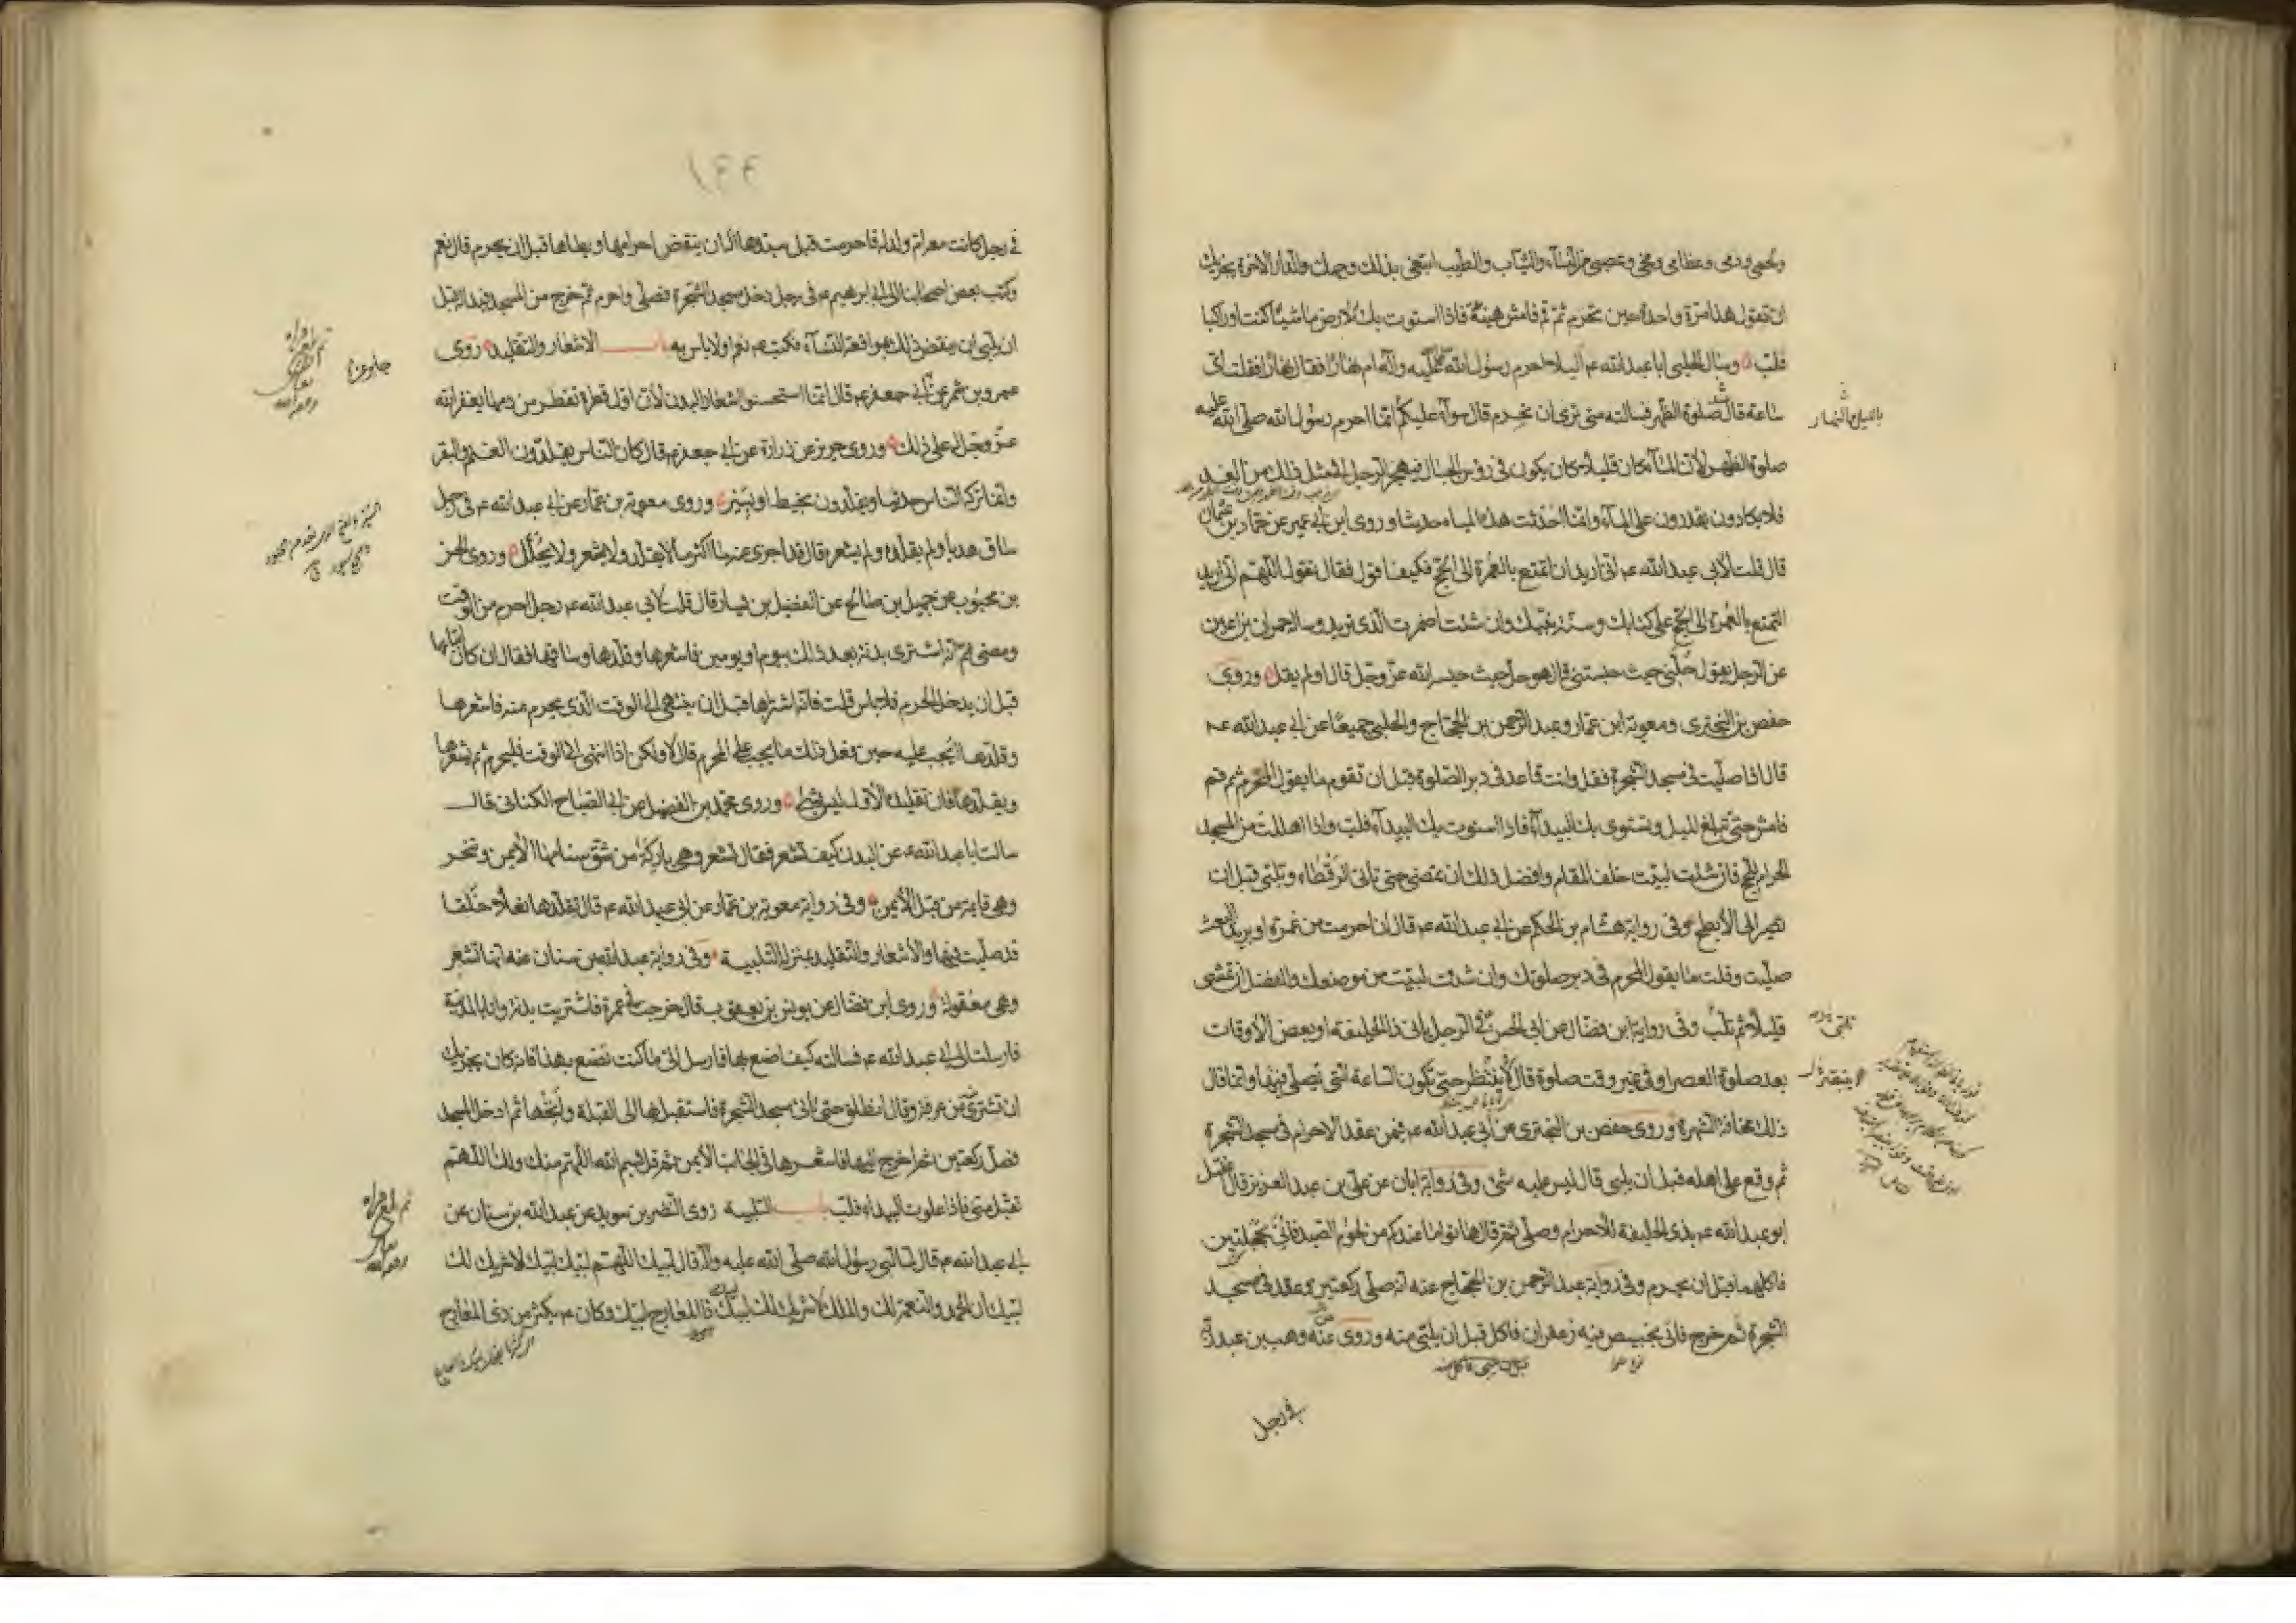 ولحمي ودمي وعظامي ومخي وعصبي من النساء والثياب والطيب ابتغي بذلك وجهك والدار الاخرة يجزيك
ان تقول هذا مرة واحدة حين تحرم ثم قم فامش هنيئة فاذا استوت بك الارض ماشيا كنت او راكبا
فلب وسال الحلبي ابا عبد الله عم اليلا احرم رسول الله صلى الله عليه واله ام نهارا فقال نهارا فقلت اي
ساعة قال صلوة الظهر فسالته متى ترى ان نحرم قال سوآء عليكم انما احرم رسول الله صلى الله عليه
صلوة الظهر لان المآء كان قليلا كان يكون في رؤس الجبال فيهجر الرجل الى مثل ذلك من الغد
فلا يكادون يقدرون على المآء وانما احدثت هذه المياه حديثا وروى ابن ابي عمير عن حماد بن عثمان
قال قلت لابي عبد الله عم اني اريد ان اتمتع بالعمرة الى الحج فكيف اقول فقال تقول اللهم اني اريد
التمتع بالعمرة الى الحج على كتابك وسنة نبيك وان شئت اضمرت الذي تريد وسال حمران بن اعين
عن الرجل يقول حلني حيث حبستني قال هو حل حيث حبسه الله عز وجل قال او لم يقل وروى
حفص بن البختري ومعوية ابن عمار وعبد الرحمن بن الحجاج والحلبي جميعا عن ابي عبد الله عم
قال اذا صليت في مسجد الشجرة فقل وانت قاعد في دبر الصلوة قبل ان تقوم ما يقول المحرم ثم قم
فامش حتى تبلغ الميل وتستوي بك البيدآء فاذا استوت بك البيدآء فلب واذا اهللت من المسجد
الحرام للحج فان شئت لبيت خلف المقام وافضل ذلك ان تمضي حتى تاتي الرقطاء وتلبي قبل ان
تصير الى الابطح وفي رواية هشام بن الحكم عن ابي عبد الله عم قال ان احرمت من غمرة او بريد البعث
صليت وقلت ما يقول المحرم في دبر صلوتك وان شئت لبيت من موضعك والفضل ان تمشي
قليلا ثم تلب وفي رواية ابن فضال عن ابي الحسن عم في الرجل ياتي ذا الحليفة او بعض الاوقات
بعد صلوة العصر او في غير وقت صلوة قال لا ينتظر حتى تكون الساعة التي تصلى فيها وانما قال
ذلك مخافة الشهرة وروى حفص بن البختري عن ابي عبد الله عم فيمن عقد الاحرام في مسجد الشجرة
ثم وقع على اهله قبل ان يلبي قال ليس عليه شئ وفي رواية ابان عن علي بن عبد العزيز قال اغتسل
ابو عبد الله عم بذي الحليفة للاحرام وصلى ثم قال هاتوا ما عندكم من لحوم الصيد فاتي بحجلتين
فاكلهما قبل ان يحرم وفي رواية عبد الرحمن بن الحجاج عنه انه صلى ركعتين وعقد في مسجد
الشجرة ثم خرج فاتي بخبيص فيه زعفران فاكل قبل ان يلبي منه وروى عنه وهب بن عبد ربه
في رجل
بالليل والنهار
١٤٤
في رجل كانت معه ام ولد له فاحرمت قبل سيدها اله ان ينقض احرامها ويطاها قبل ان يحرم قال نعم
وكتب بعض اصحابنا الى ابي ابرهيم عم في رجل دخل مسجد الشجرة فصلى واحرم ثم خرج من المسجد فبدا له قبل
ان يلبي ان ينقض ذلك بمواقعة النسآء فكتب عم نعم او لا باس به باب الاشعار والتقليد روى
عمرو بن شمر عن جابر عن ابي جعفر عم قال انما استحسنوا اشعار البدن لان اول قطرة تقطر من دمها يغفر الله
عز وجل له على ذلك وروى حريز عن زرارة عن ابي جعفر عم قال كان الناس يقلدون الغنم والبقر
وانما تركه الناس حديثا ويقلدون بخيط او بسير وروى معوية بن عمار عن ابي عبد الله عم في رجل
ساق هديا ولم يقلده ولم يشعره قال قد اجزى عنه ما اكثر ما لا يقلد ولا يشعر ولا يجلل وروى الحسن
بن محبوب عن جميل بن صالح عن الفضيل بن يسار قال قلت لابي عبد الله عم رجل احرم من الوقت
ومضى ثم انه اشترى بدنة بعد ذلك بيوم او يومين فاشعرها وقلدها وساقها فقال ان كان ابتاعها
قبل ان يدخل الحرم فلا باس قلت فانه اشتراها قبل ان ينتهي الى الوقت الذي يحرم منه فاشعرها
وقلدها ايجب عليه حين فعل ذلك ما يجب على المحرم قال لا ولكن اذا انتهى الى الوقت فليحرم ثم يشعرها
ويقلدها فان تقليده الاول ليس بشئ وروى محمد بن الفضيل عن ابي الصباح الكناني قال
سالت ابا عبد الله عم عن البدن كيف تشعر فقال تشعر وهي باركة من شق سنامها الايمن وتنحر
وهي قايمة من قبل الايمن وفي رواية معوية بن عمار عن ابي عبد الله عم قال تقلدها نعلا خلقا
قد صليت فيها والاشعار والتقليد بمنزلة التلبية وفي رواية عبد الله بن سنان عنه انها تشعر
وهي معقولة وروى ابن فضال عن يونس بن يعقوب قال خرجت في عمرة فاشتريت بدنة وانا بالمدينة
فارسلت الى ابي عبد الله عم فسالته كيف اصنع بها فارسل الي ما كنت تصنع بهذا فانه كان يجزيك
ان تشتري من عرفة وقال انطلق حتى تاتي مسجد الشجرة فاستقبل بها الى القبلة وانخها ثم ادخل المسجد
فصل ركعتين ثم اخرج اليها فاشعرها في الجانب الايمن ثم قل بسم الله اللهم منك ولك اللهم
تقبل مني فاذا علوت البيداء فلب باب التلبية روى النضر بن سويد عن عبد الله بن سنان عن
ابي عبد الله عم قال لما لبى رسول الله صلى الله عليه واله قال لبيك اللهم لبيك لبيك لا شريك لك
لبيك ان الحمد والنعمة لك والملك لا شريك لك لبيك ذا المعارج لبيك وكان عم يكثر من ذي المعارج